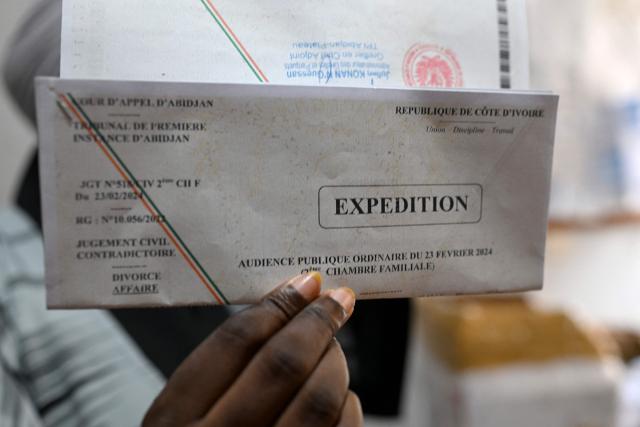 COUR D'APPEL D'ABIDJAN
TRIBUNAL DE PREMIERE
INSTANCE D'ABIDJAN
JGT N°518/CIV 2ème CH F
Du 23/02/2024
RG : N°10.056/2022
JUGEMENT CIVIL
CONTRADICTOIRE
DIVORCE
AFFAIRE
REPUBLIQUE DE CÔTE D'IVOIRE
Union - Discipline - Travail
EXPEDITION
AUDIENCE PUBLIQUE ORDINAIRE DU 23 FEVRIER 2024
(2ème CHAMBRE FAMILIALE)
Julien KONAN N'Guessan
Administrateur des Greffes et Parquets
Greffier en Chef Adjoint
TPI Abidjan-Plateau